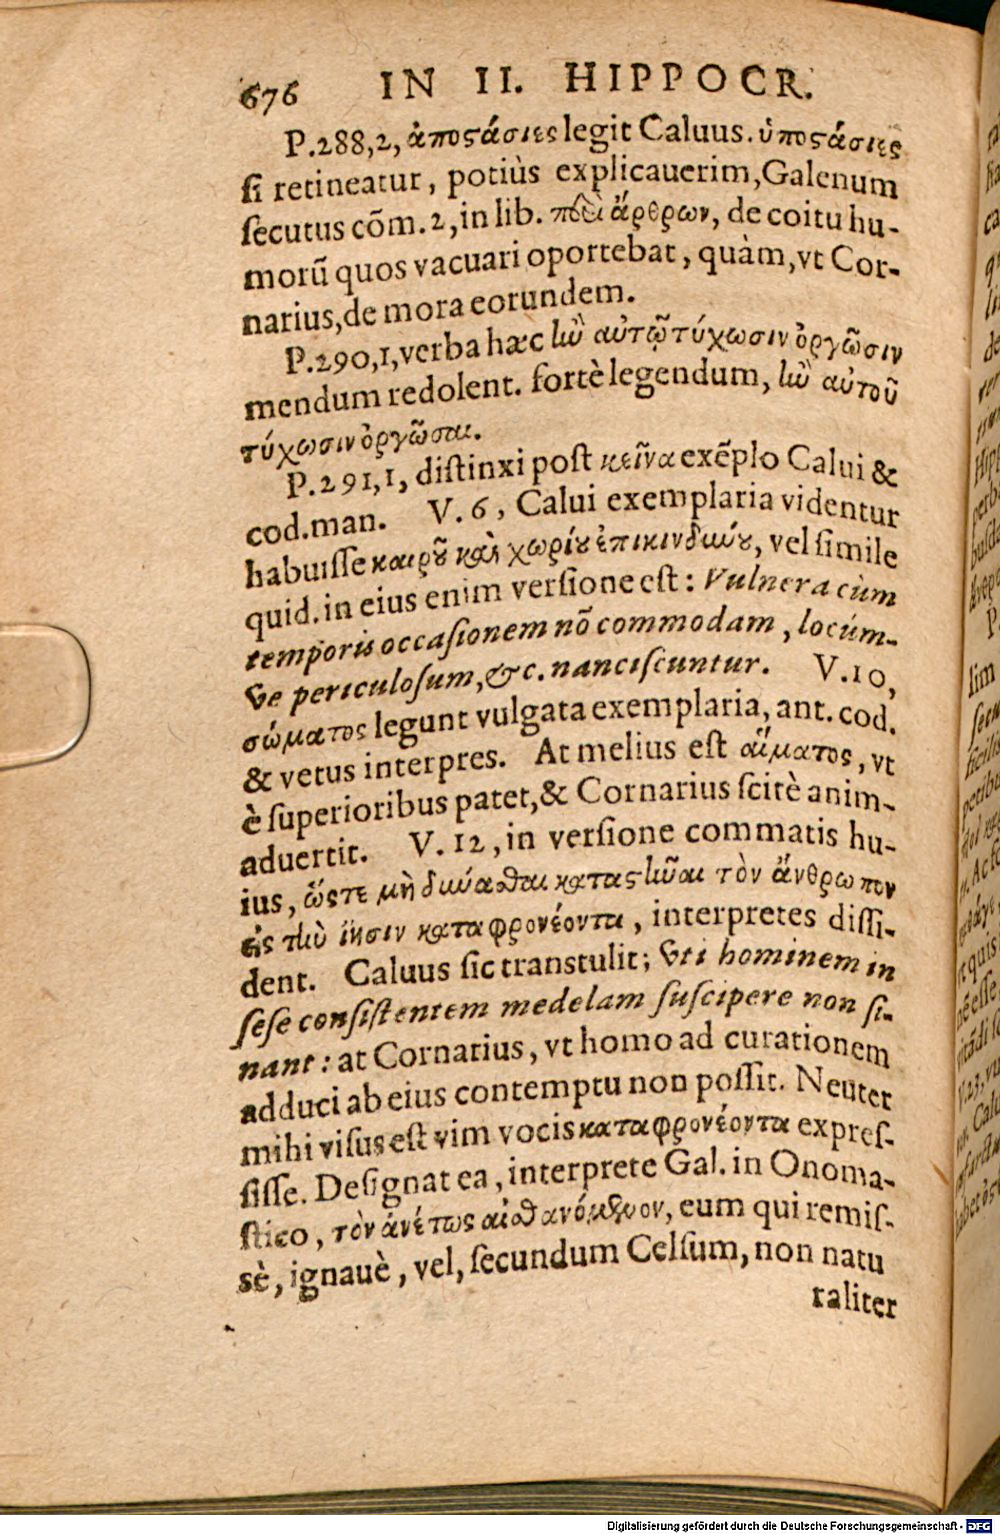 676 IN II. HIPPOCR.
P.288,2, ἀποςάσιες legit Caluus. ὑποςάσιες
ſi retineatur, potiùs explicauerim, Galenum
ſecutus cõm. 2, in lib. πεὶ ἄρθρων, de coitu hu-
morũ quos vacuari oportebat, quàm, vt Cor-
narius, de mora eorundem.
P.290,1, verba hæc ἢν αὐτῷ τύχωσιν ὀργῶσιν
mendum redolent. fortè legendum, ἢν αὐτοῦ
τύχωσιν ὀργῶσαι.
P.291,1, diſtinxi poſt κεῖνα exẽplo Calui &
cod. man. V. 6, Calui exemplaria videntur
habuiſſe καιροῦ καὶ χωρίου ἐπικινδύνου, vel ſimile
quid. in eius enim verſione eſt: Vulnera cùm
temporis occaſionem nõ commodam, locúm-
ve periculoſum, &c. nanciſcuntur. V.10,
σώματος legunt vulgata exemplaria, ant. cod.
& vetus interpres. At melius eſt αἵματος, vt
è ſuperioribus patet, & Cornarius ſcitè anim-
aduertit. V. 12, in verſione commatis hu-
ius, ὥςτε μὴ δύναθαι καταςῆναι τὸν ἄνθρωπον
εἰς τὴν ἴησιν καταφρονέοντα, interpretes diſſi-
dent. Caluus ſic transtulit; Vti hominem in
ſeſe conſiſtentem medelam ſuſcipere non ſi-
nant: at Cornarius, vt homo ad curationem
adduci ab eius contemptu non poſſit. Neuter
mihi viſus eſt vim vocis καταφρονέοντα expreſ-
ſiſſe. Deſignat ea, interprete Gal. in Onoma-
ſtico, τὸν ἀνέτως αἰσθανόμενον, eum qui remiſ-
sè, ignauè, vel, ſecundum Celſum, non natu
raliter
Digitalisierung gefördert durch die Deutsche Forschungsgemeinschaft - DFG